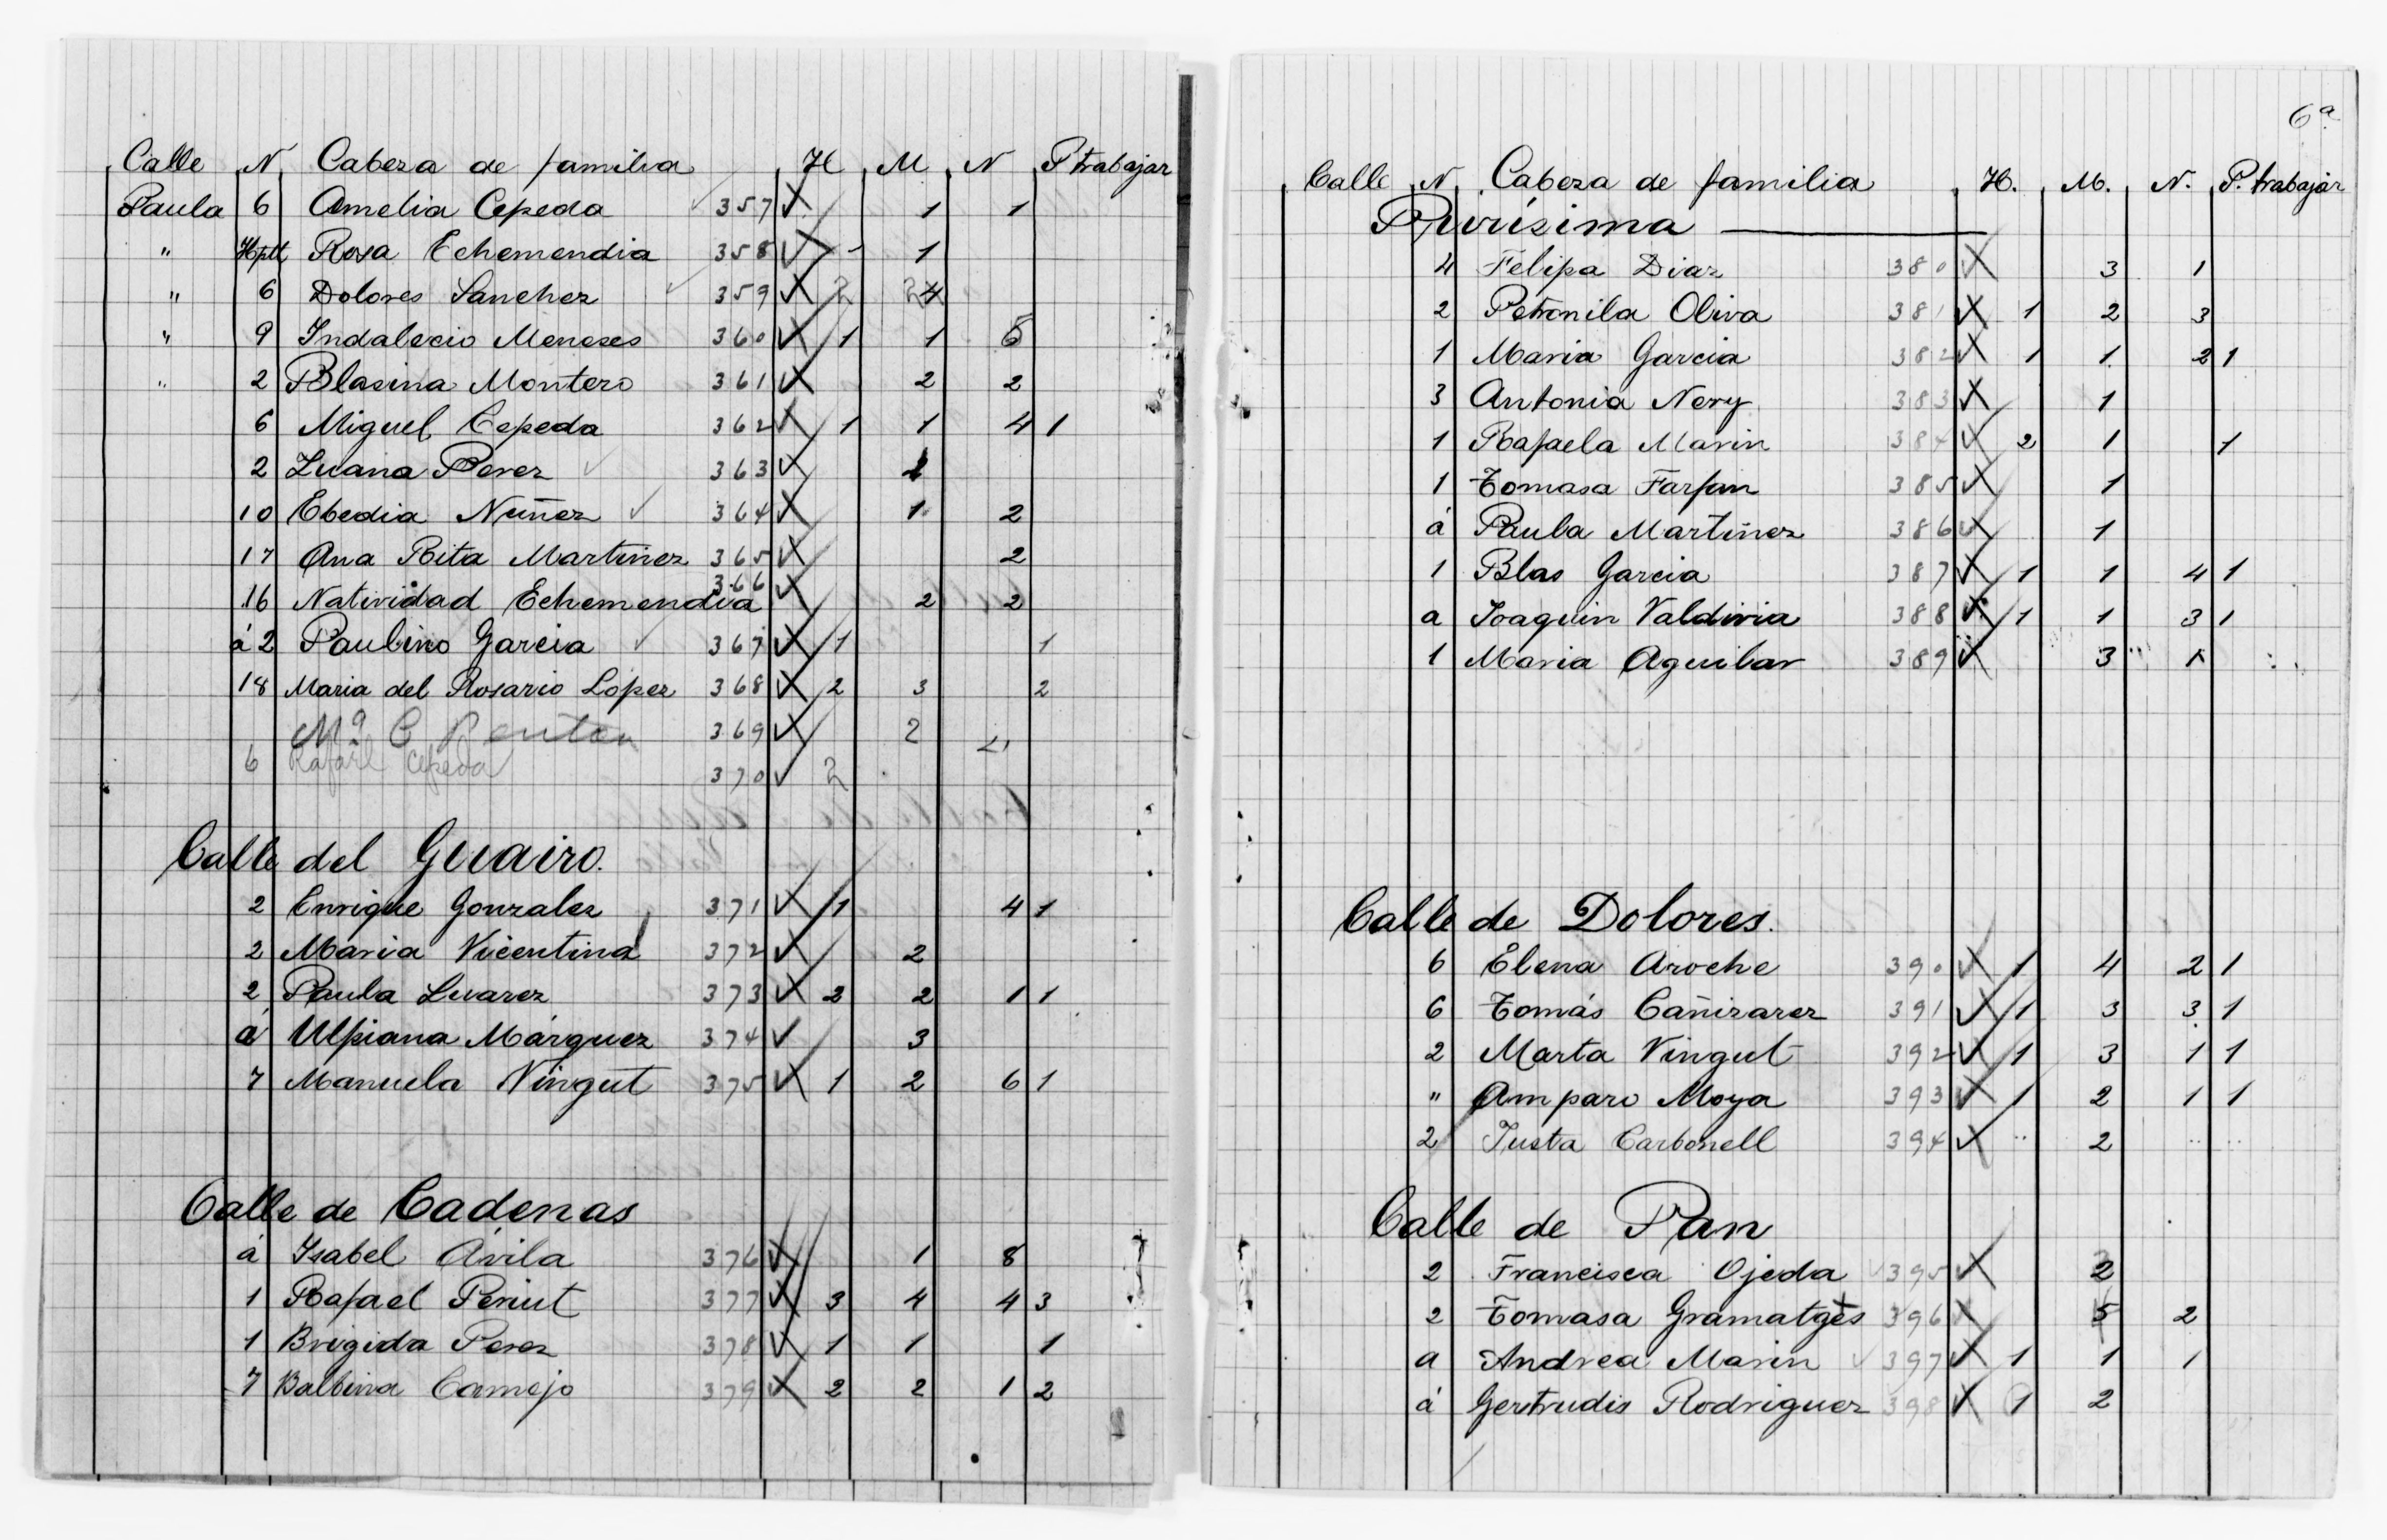 Calle N Cabeza de familia H M N P trabajar
Paula 6 Amelia Cepeda 357 1 1
" Hptl Rosa Echemendia 358 - 1
" 6 Dolores Sanchez 359 2
" 9 Indalecio Meneses 360 1 1 6
" 2 Blasina Montero 361 2 2
6 Miguel Cepeda 362 1 1 4 1
2 Luana Perez 363 1
10 Ebedia Nuñez 364 1 2
17 Ana Rita Martinez 365 2
16 Natividad Echemendia 366 2 2
á 2 Paulino Garcia 367 1 1
18 Maria del Rosario Lopez 368 2 3 2
Mª C Renten 369 2
6 Rafael Cepeda 370 2
Calle del Guairo.
2 Enrique Gonzalez 371 1 4 1
2 Maria Vicentina 372 2
2 Paula Luarez 373 2 2 1 1
á Ulpiana Márquez 374 3
7 Manuela Ningut 375 1 2 6 1
Calle de Cadenas
á Isabel Avila 376 1 8
1 Rafael Periut 377 3 4 4 3
1 Brigida Perez 378 1 1 1
7 Balbina Camejo 379 2 2 1 2
6ª
Calle N. Cabeza de familia H. M. N. P. trabajar
Purísima
4 Felipa Diaz 380 3 1
2 Petronila Oliva 381 1 2 3
1 Maria Garcia 382 1 1 2 1
3 Antonia Nery 383 1
1 Rafaela Marin 384 2 1 1
1 Tomasa Farfan 385 1
á Paula Martinez 386 1
1 Blas Garcia 387 1 1 4 1
a Joaquin Valdivia 388 1 1 3 1
1 Maria Aguilar 389 3 " 1
Calle de Dolores.
6 Elena Aroche 390 1 4 2 1
6 Tomás Cañizarez 391 1 3 3 1
2 Marta Vingut 392 1 3 1 1
" Amparo Moya 393 1 2 1 1
2 Justa Carbonell 394 " 2 " "
Calle de Pan
2 Francisca Ojeda 395 2
2 Tomasa Gramatges 396 5 2
a Andrea Marin 397 1 1 1
á Gertrudis Rodriguez 398 1 2